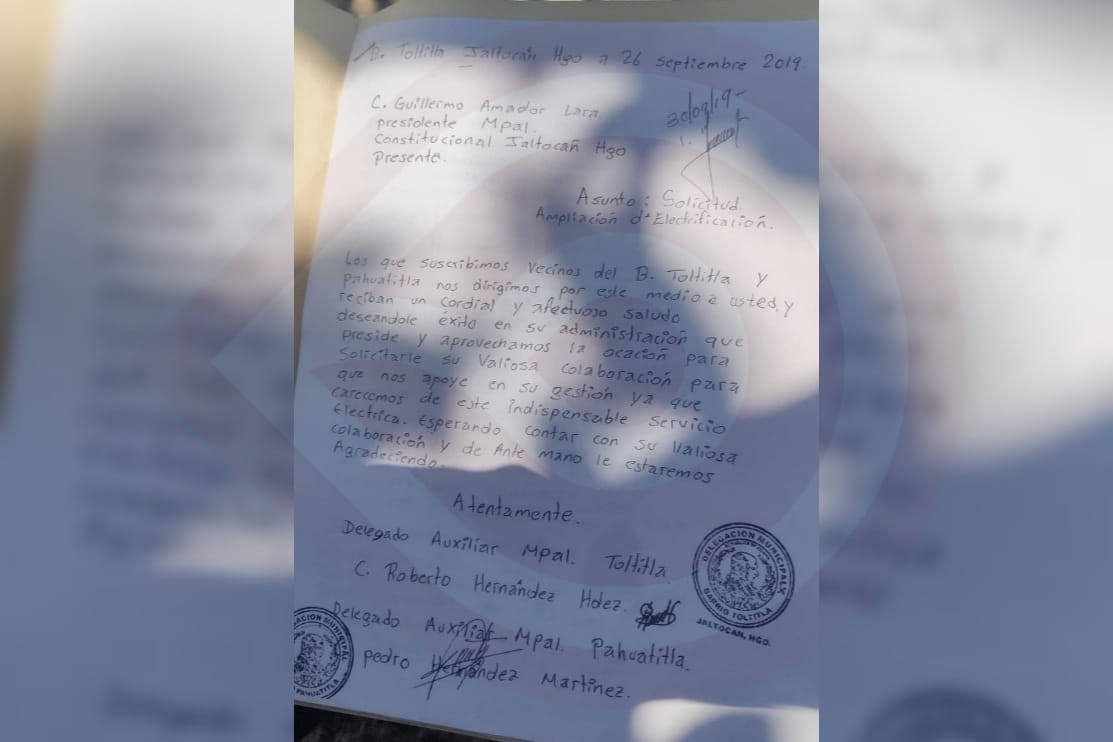 B. Toltitla Jaltocán Hgo a 26 septiembre 2019.
30/09/19-
C. Guillermo Amador Lara
presidente Mpal.
Constitucional Jaltocañ Hgo
Presente.
Asunto: Solicitud.
Ampliación d' Electrificación.
Los que suscribimos Vecinos del B. Toltitla y
Pahuatitla nos dirigimos por este medio a usted, y
reciban un cordial y afectuoso saludo
deseandole éxito en su administración que
preside y aprovechamos la ocación para
Solicitarle su Valiosa Colaboración para
que nos apoye en su gestión ya que
carecemos de este indispensable servicio
Electrica. Esperando contar con su Valiosa
colaboración y de Ante mano le estaremos
Agradeciendo.
Atentamente.
Delegado Auxiliar Mpal. Toltitla.
C. Roberto Hernández Hdez.
DELEGACION MUNICIPAL
BARRIO TOLTITLA
JALTOCAN, HGO.
Delegado Auxiliar Mpal. Pahuatitla.
Pedro Hernández Martinez.
ACION MUNICIPAL
PAHUATITLA